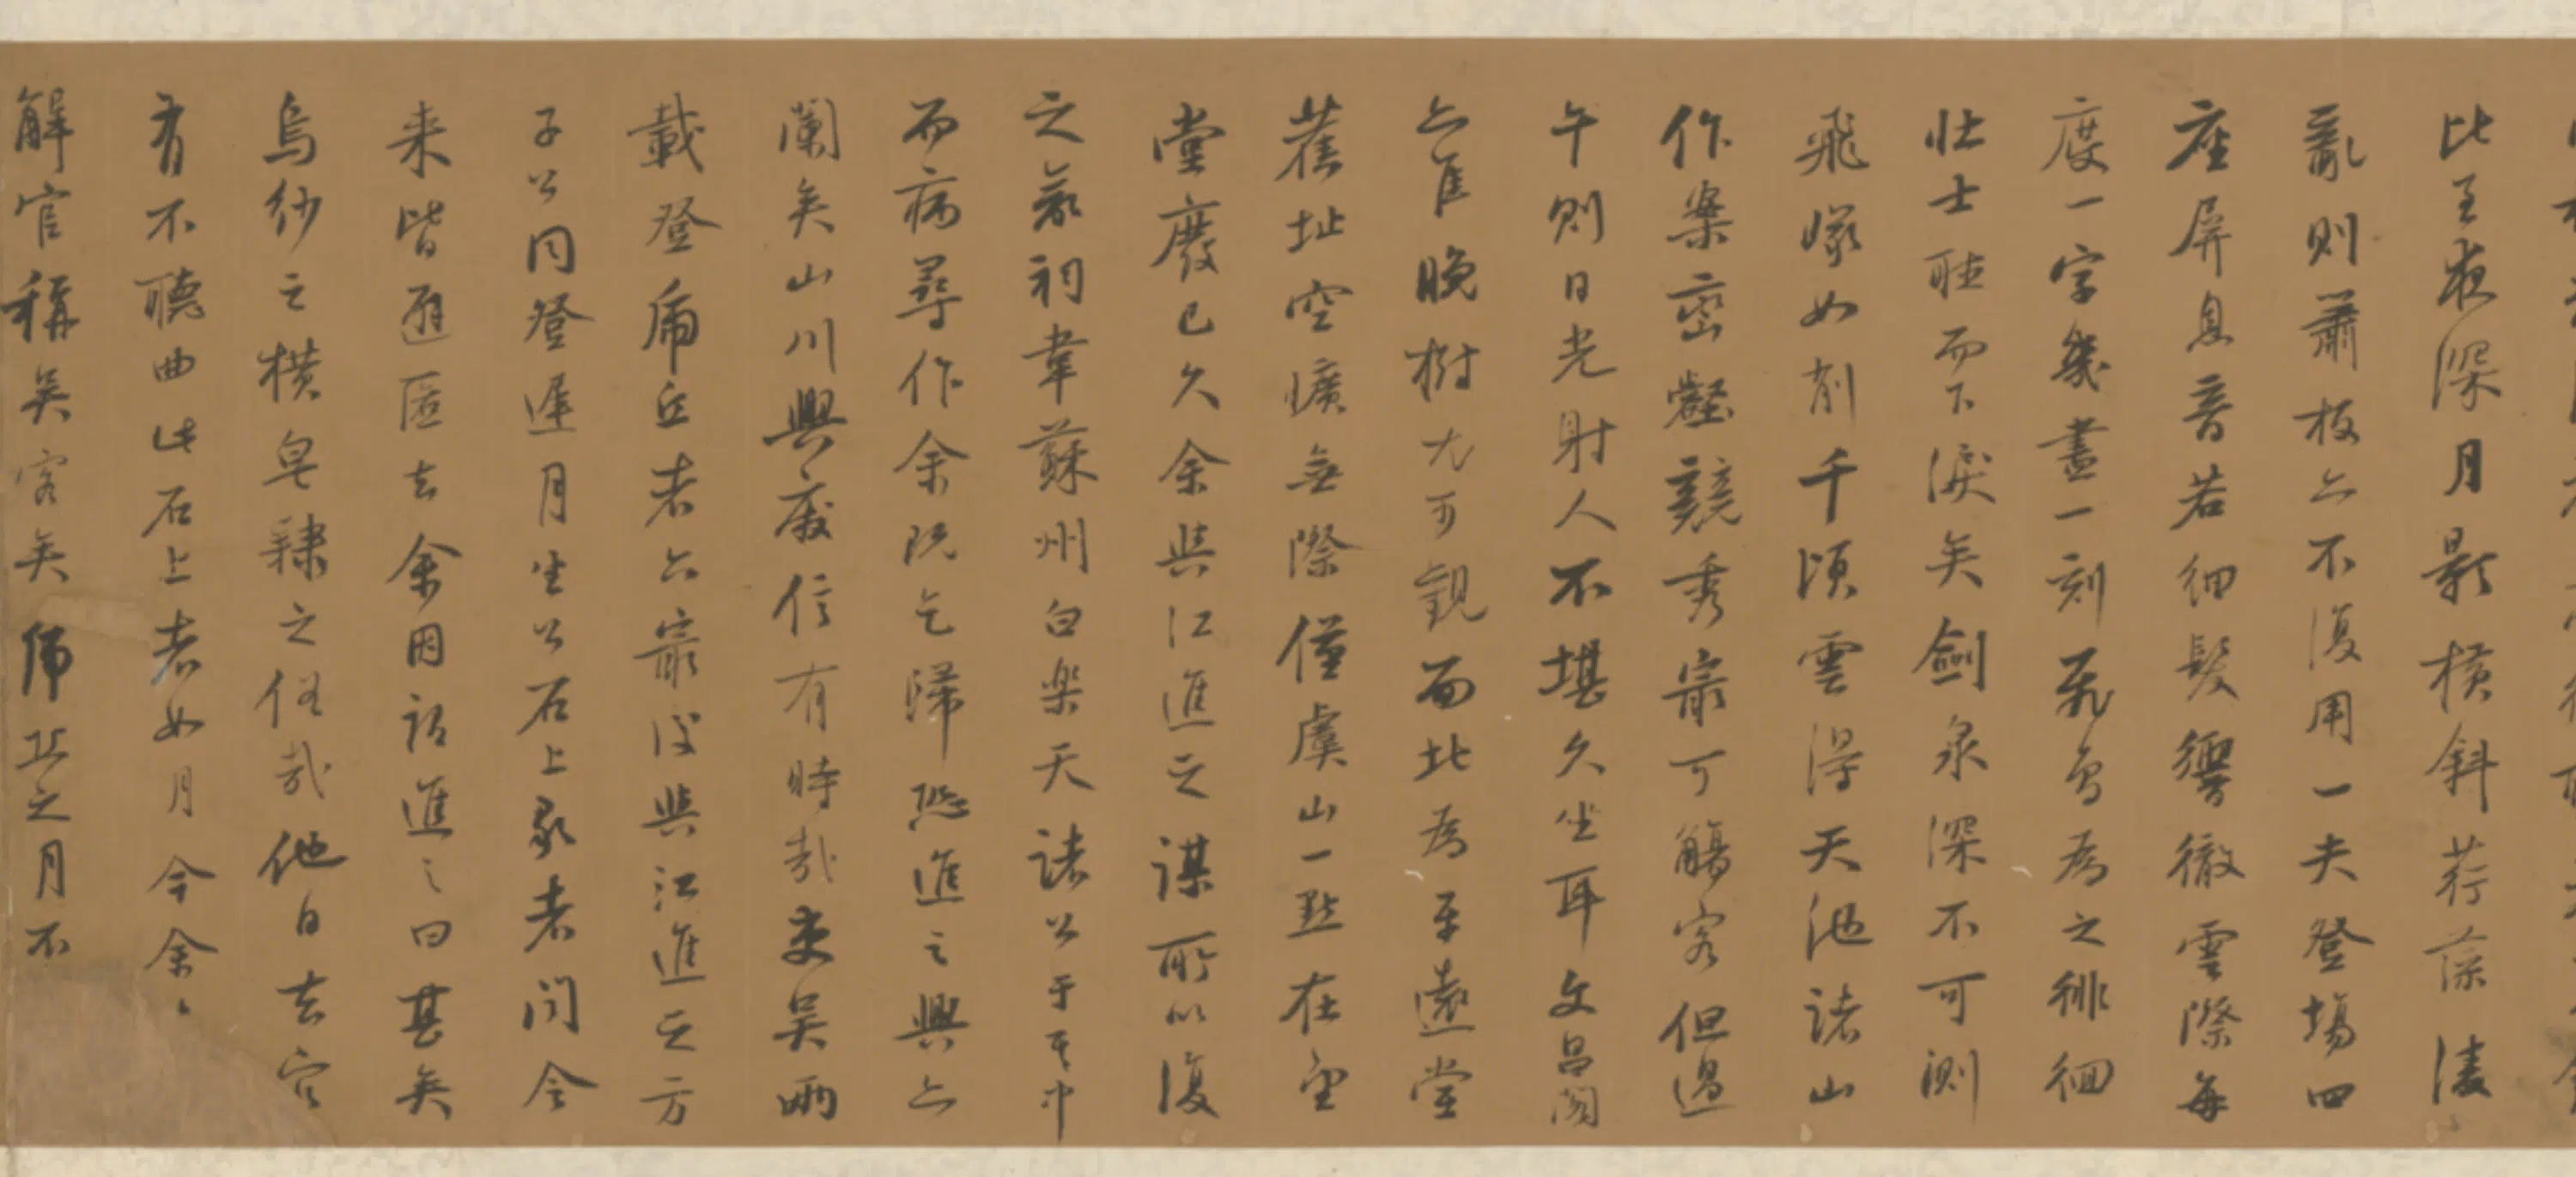 比至夜深月影橫斜荇藻凌
亂則蕭板亦不復用一夫登場四
座屏息音若細髮響徹雲際每
度一字幾盡一刻飛鳥為之徘徊
壯士聽而下淚矣劍泉深不可測
飛巖如削千頃雲得天池諸山
作案巒壑競秀最可觴客但過
午則日光射人不堪久坐耳文昌閣
亦佳晚樹尤可觀面北為平遠堂
舊址空曠無際僅虞山一點在望
堂廢已久余與江進之謀所以復
之欲祠韋蘇州白樂天諸公于其中
而病尋作余既乞歸恐進之興亦
闌矣山川興廢信有時哉吏吳兩
載登虎丘者六最後與江進之方
子公同登遲月生公石上歌者聞令
來皆避匿去余因謂進之曰甚矣
烏紗之橫皂隸之俗哉他日去官
有不聽曲此石上者如月今余
解官稱吳客矣虎丘之月不